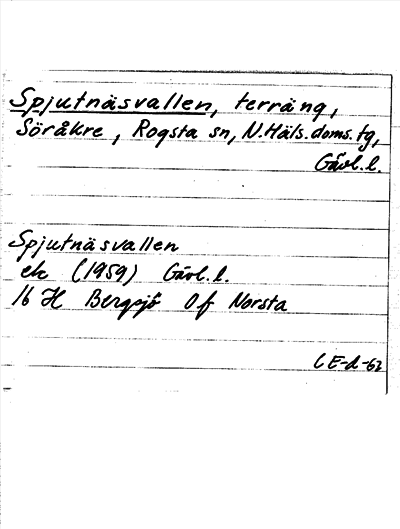 Spjutnäsvallen, terräng,
Söråkre, Rogsta sn, N.Häls.doms.tg,
Gävl.l.
Spjutnäsvallen
ek (1959) Gävl.l.
16 H Bergsjö 0f Norsta
CE-d-62